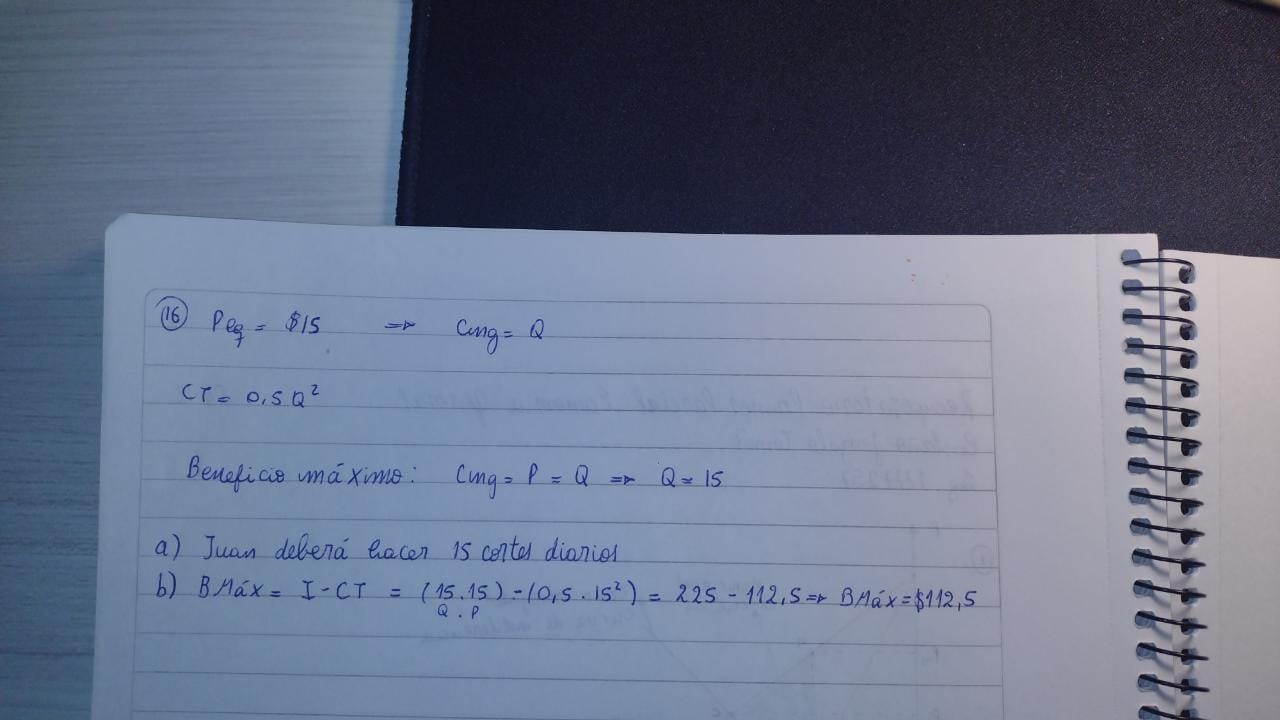 16 Peq = $15 => Cmg = Q
CT = 0,5Q²
Beneficio máximo: Cmg = P = Q => Q = 15
a) Juan deberá hacer 15 cortes diarios
b) BMáx = I - CT = (15.15) - (0,5 . 15²) = 225 - 112,5 => BMáx = $112,5
Q . P